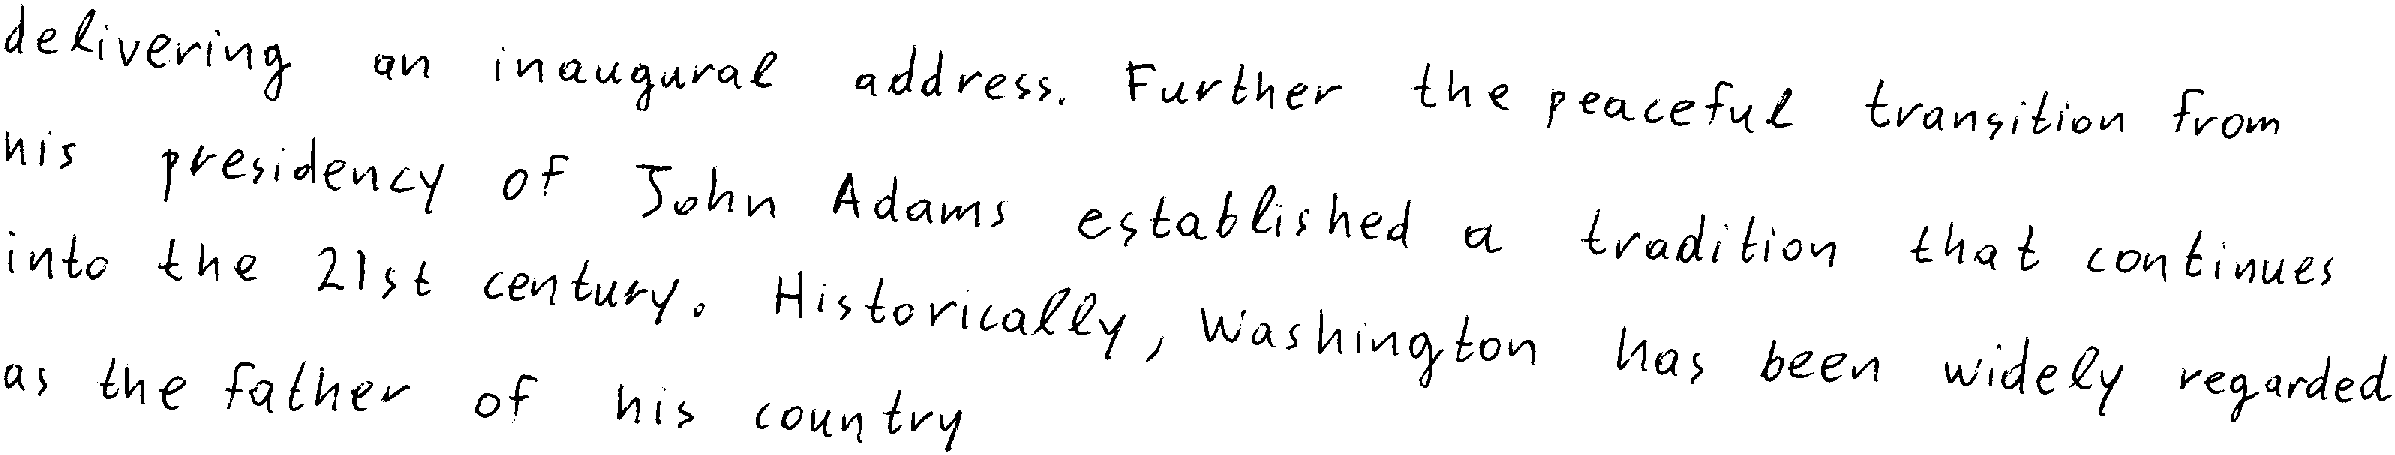 delivering an inaugural address. Further the peaceful transition from
his presidency of John Adams established a tradition that continues
into the 21st century. Historically, Washington has been widely regarded
as the father of his country